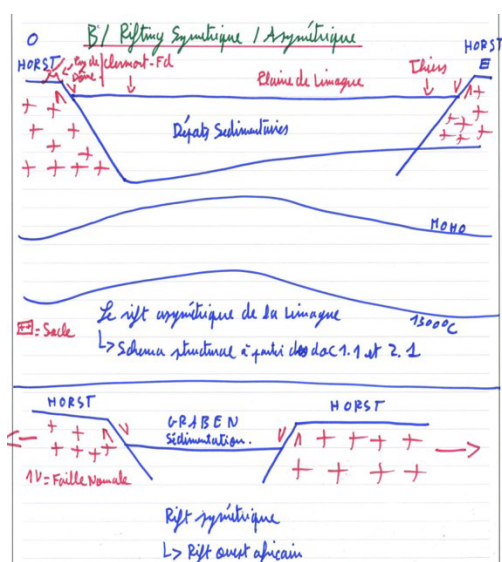 O
B/ Rifting Symétrique / Asymétrique
HORST
HORST
E
Puy de Dôme
Clermont-Fd
Plaine de Limagne
Thiers
Dépôts Sédimentaires
MOHO
1300°C
Le rift asymétrique de la Limagne
= Socle
↳ Schéma structural à partir des doc 1.1 et 2.1
HORST
HORST
GRABEN
Sédimentation.
= Faille Normale
Rift symétrique
↳ Rift ouest africain